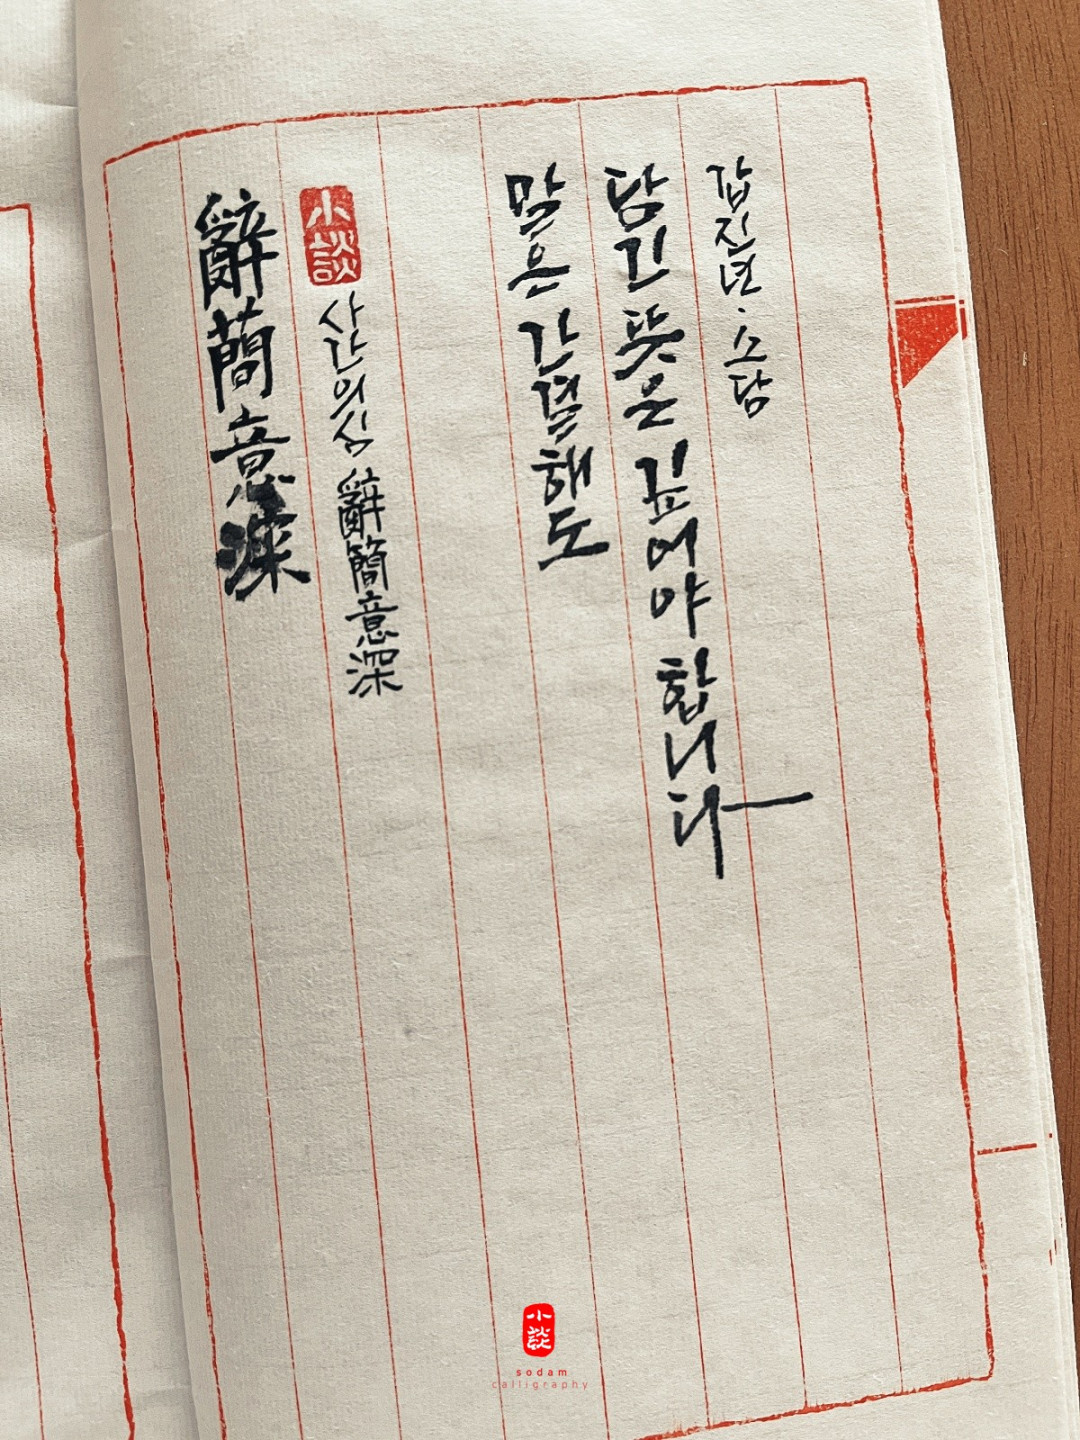 辭簡意深
小談
사간의심 辭簡意深
말은 간결해도
담긴 뜻은 깊어야 합니다
갑진년·소담
小談
sodam
calligraphy